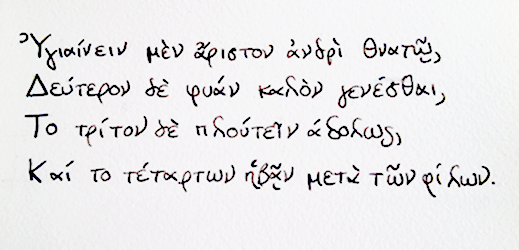 Ὑγιαίνειν μὲν ἄριστον ἀνδρὶ θνατῷ,
Δεύτερον δὲ φυάν καλὸν γενέσθαι,
Το τρίτον δὲ πλούτεῖν ἀδολως,
Καί το τέταρτων ἡβᾷν μετὰ τῶν φίλων.